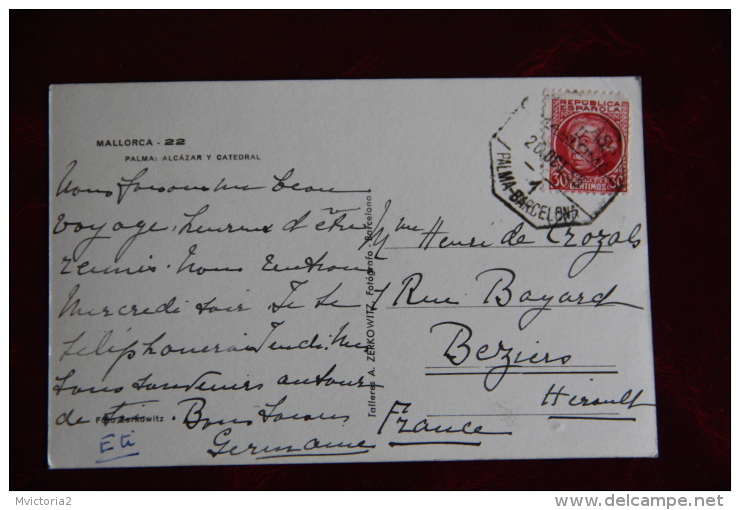 MALLORCA - 22
PALMA: ALCÁZAR Y CATEDRAL
REPUBLICA
ESPAÑOLA
30 CENTIMOS 30
20 DEC
1
PALMA-BARCELONA
Nous faisons un beau
voyage, heureux d'être
réunis. Nous rentrons
Mercredi soir. Je te
téléphonerai Jeudi. Mes
bons souvenirs autour
de Bons baisers
Germaine
Foto Zerkowitz
Eti
Talleres A. ZERKOWITZ, Fotógrafo - Barcelona
Mme Henri de Crozals
Rue Bayard
Beziers
Hérault
France
Mvictoria2
www.delcampe.net